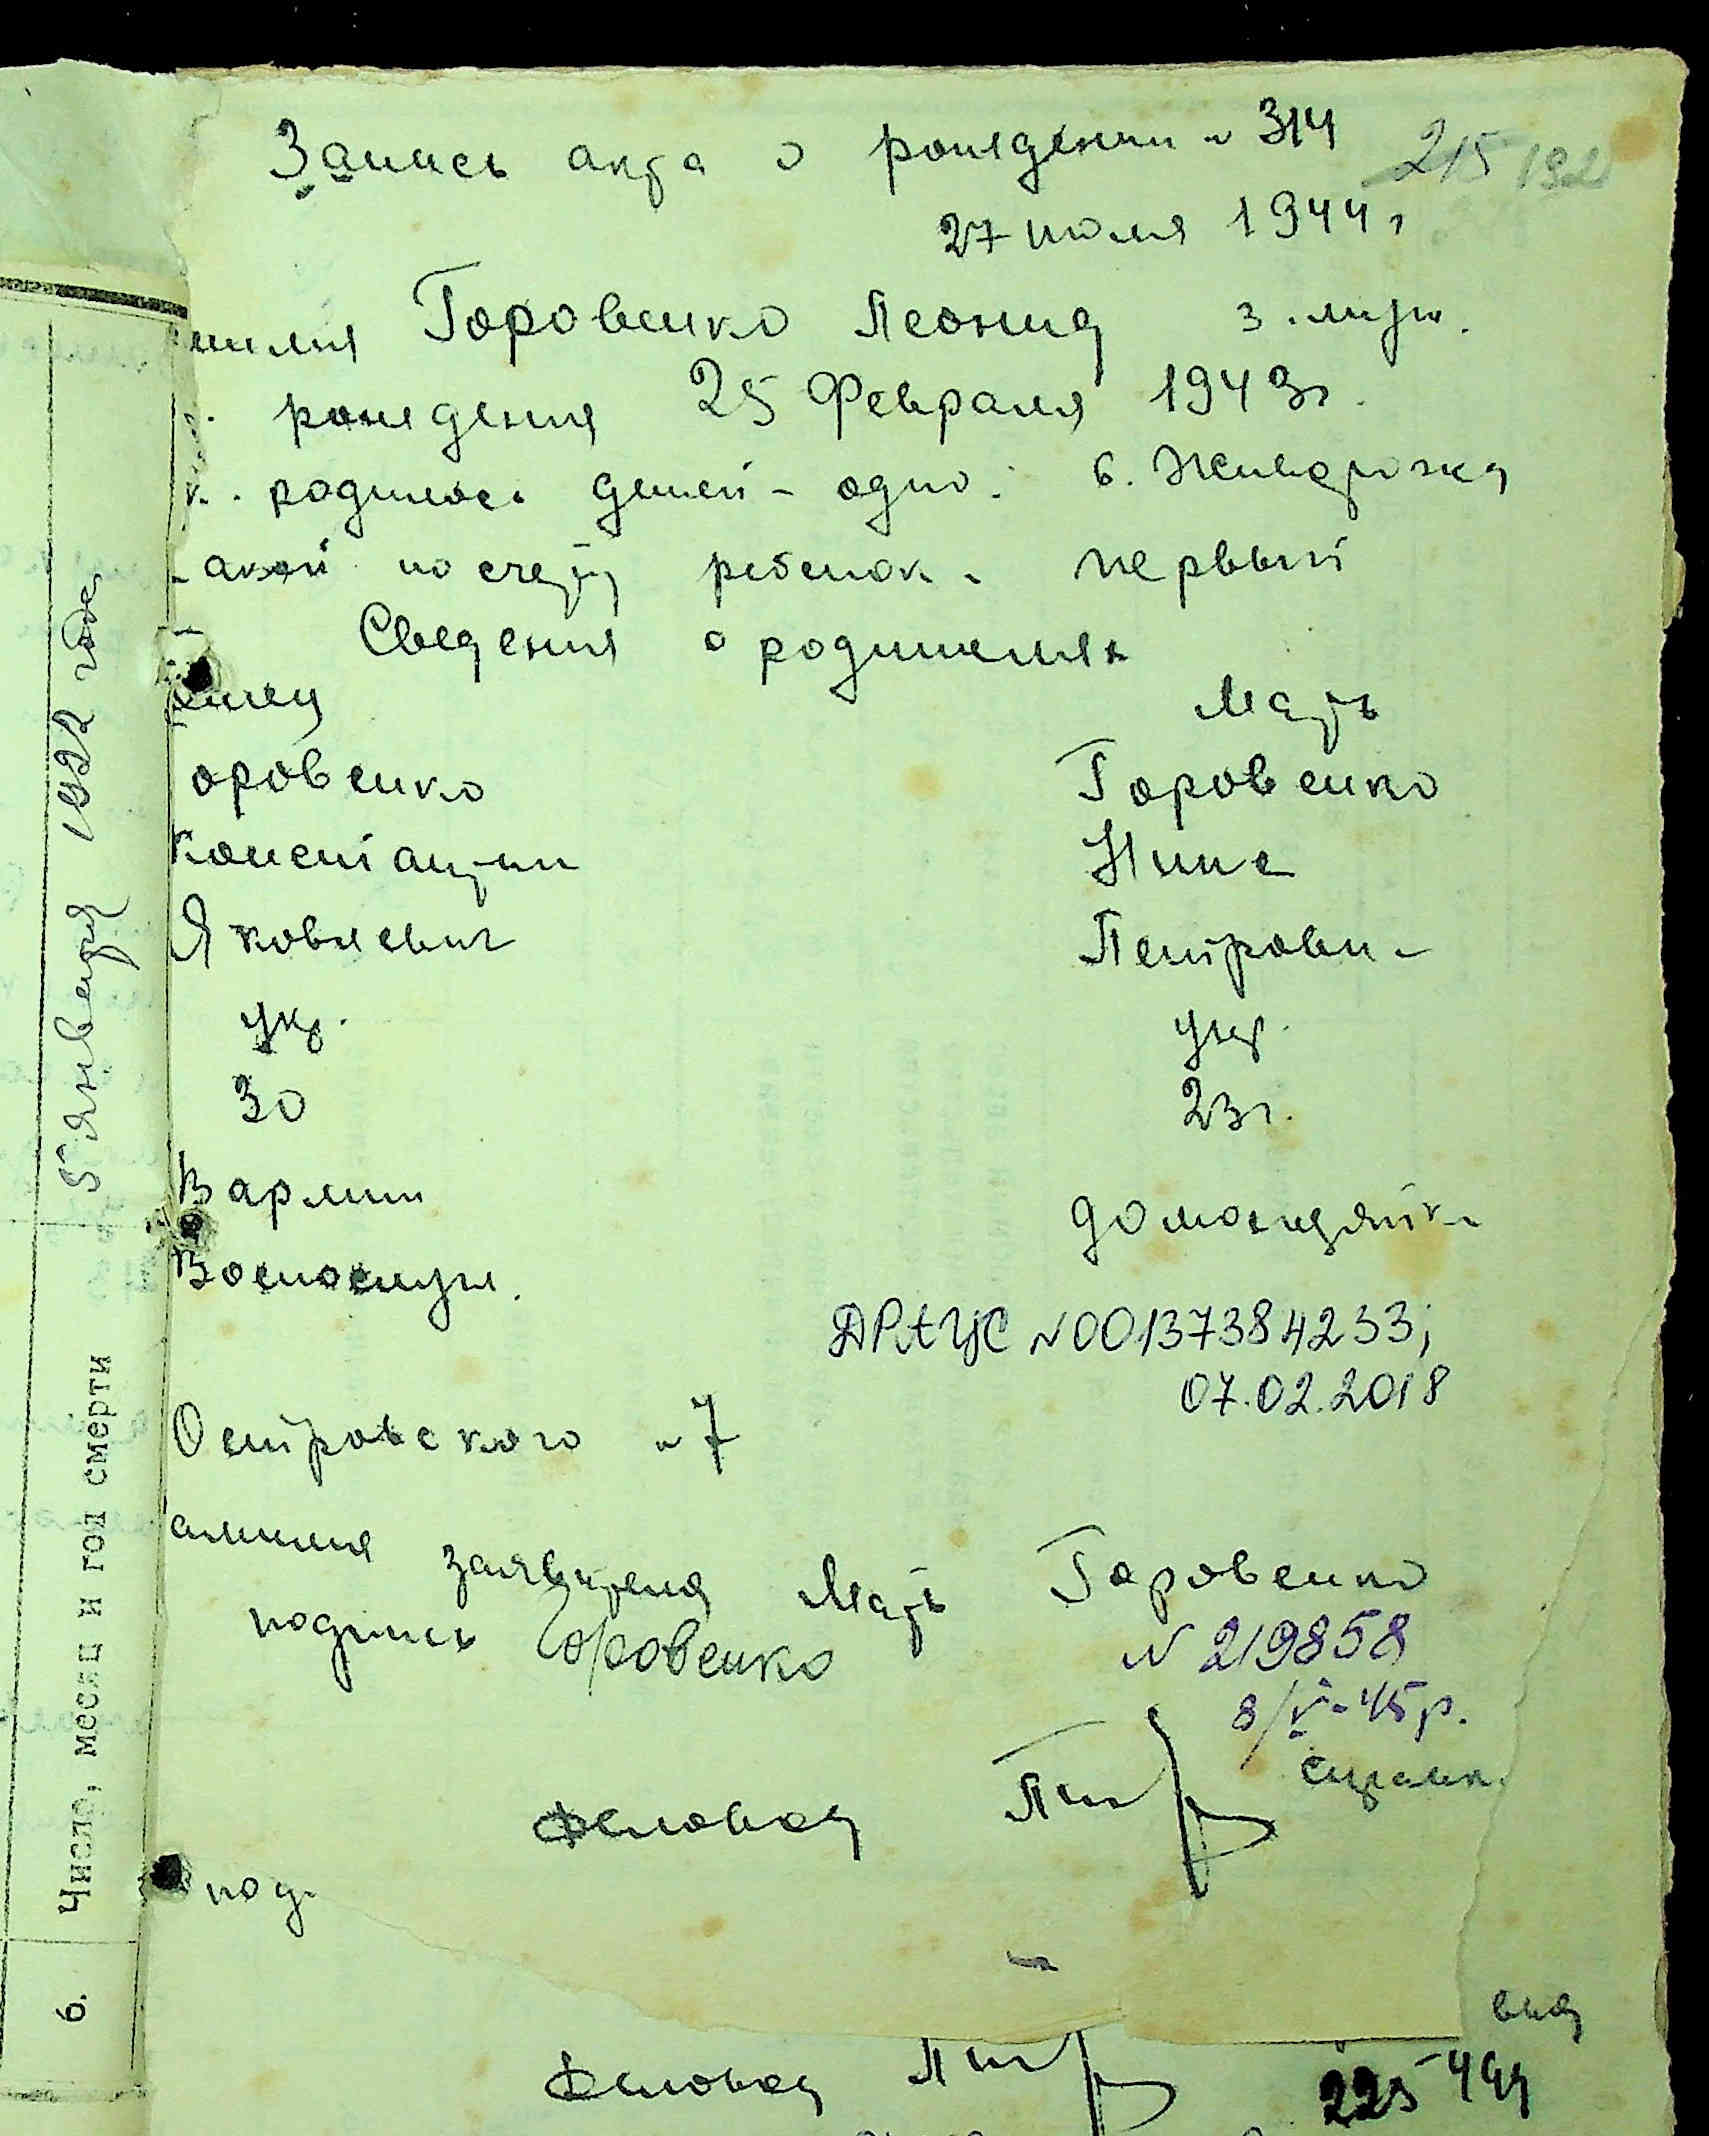 Запись акта о рождении № 314
215 192
27 июля 1944 г
милия Горовенко Леонид 3. муж.
рождения 25 Февраля 1943 г.
родилось детей - одно. 6.
акой по счету ребенок - первый
Сведения о родителях
Мать
оровенко Горовенко
Констант Нина
Яковлевич Петровн
укр. укр.
30 23 г.
В армии домохозяйк
Военослуж.
ДРАЦС № 00137384233;
07.02.2018
Островского № 7
амилия заявителя Мать Горовенко
подпись Горовенко № 219858
8/V-45р.
под.
225
Число, месяц и год смерти 5 января 1922 года
6.